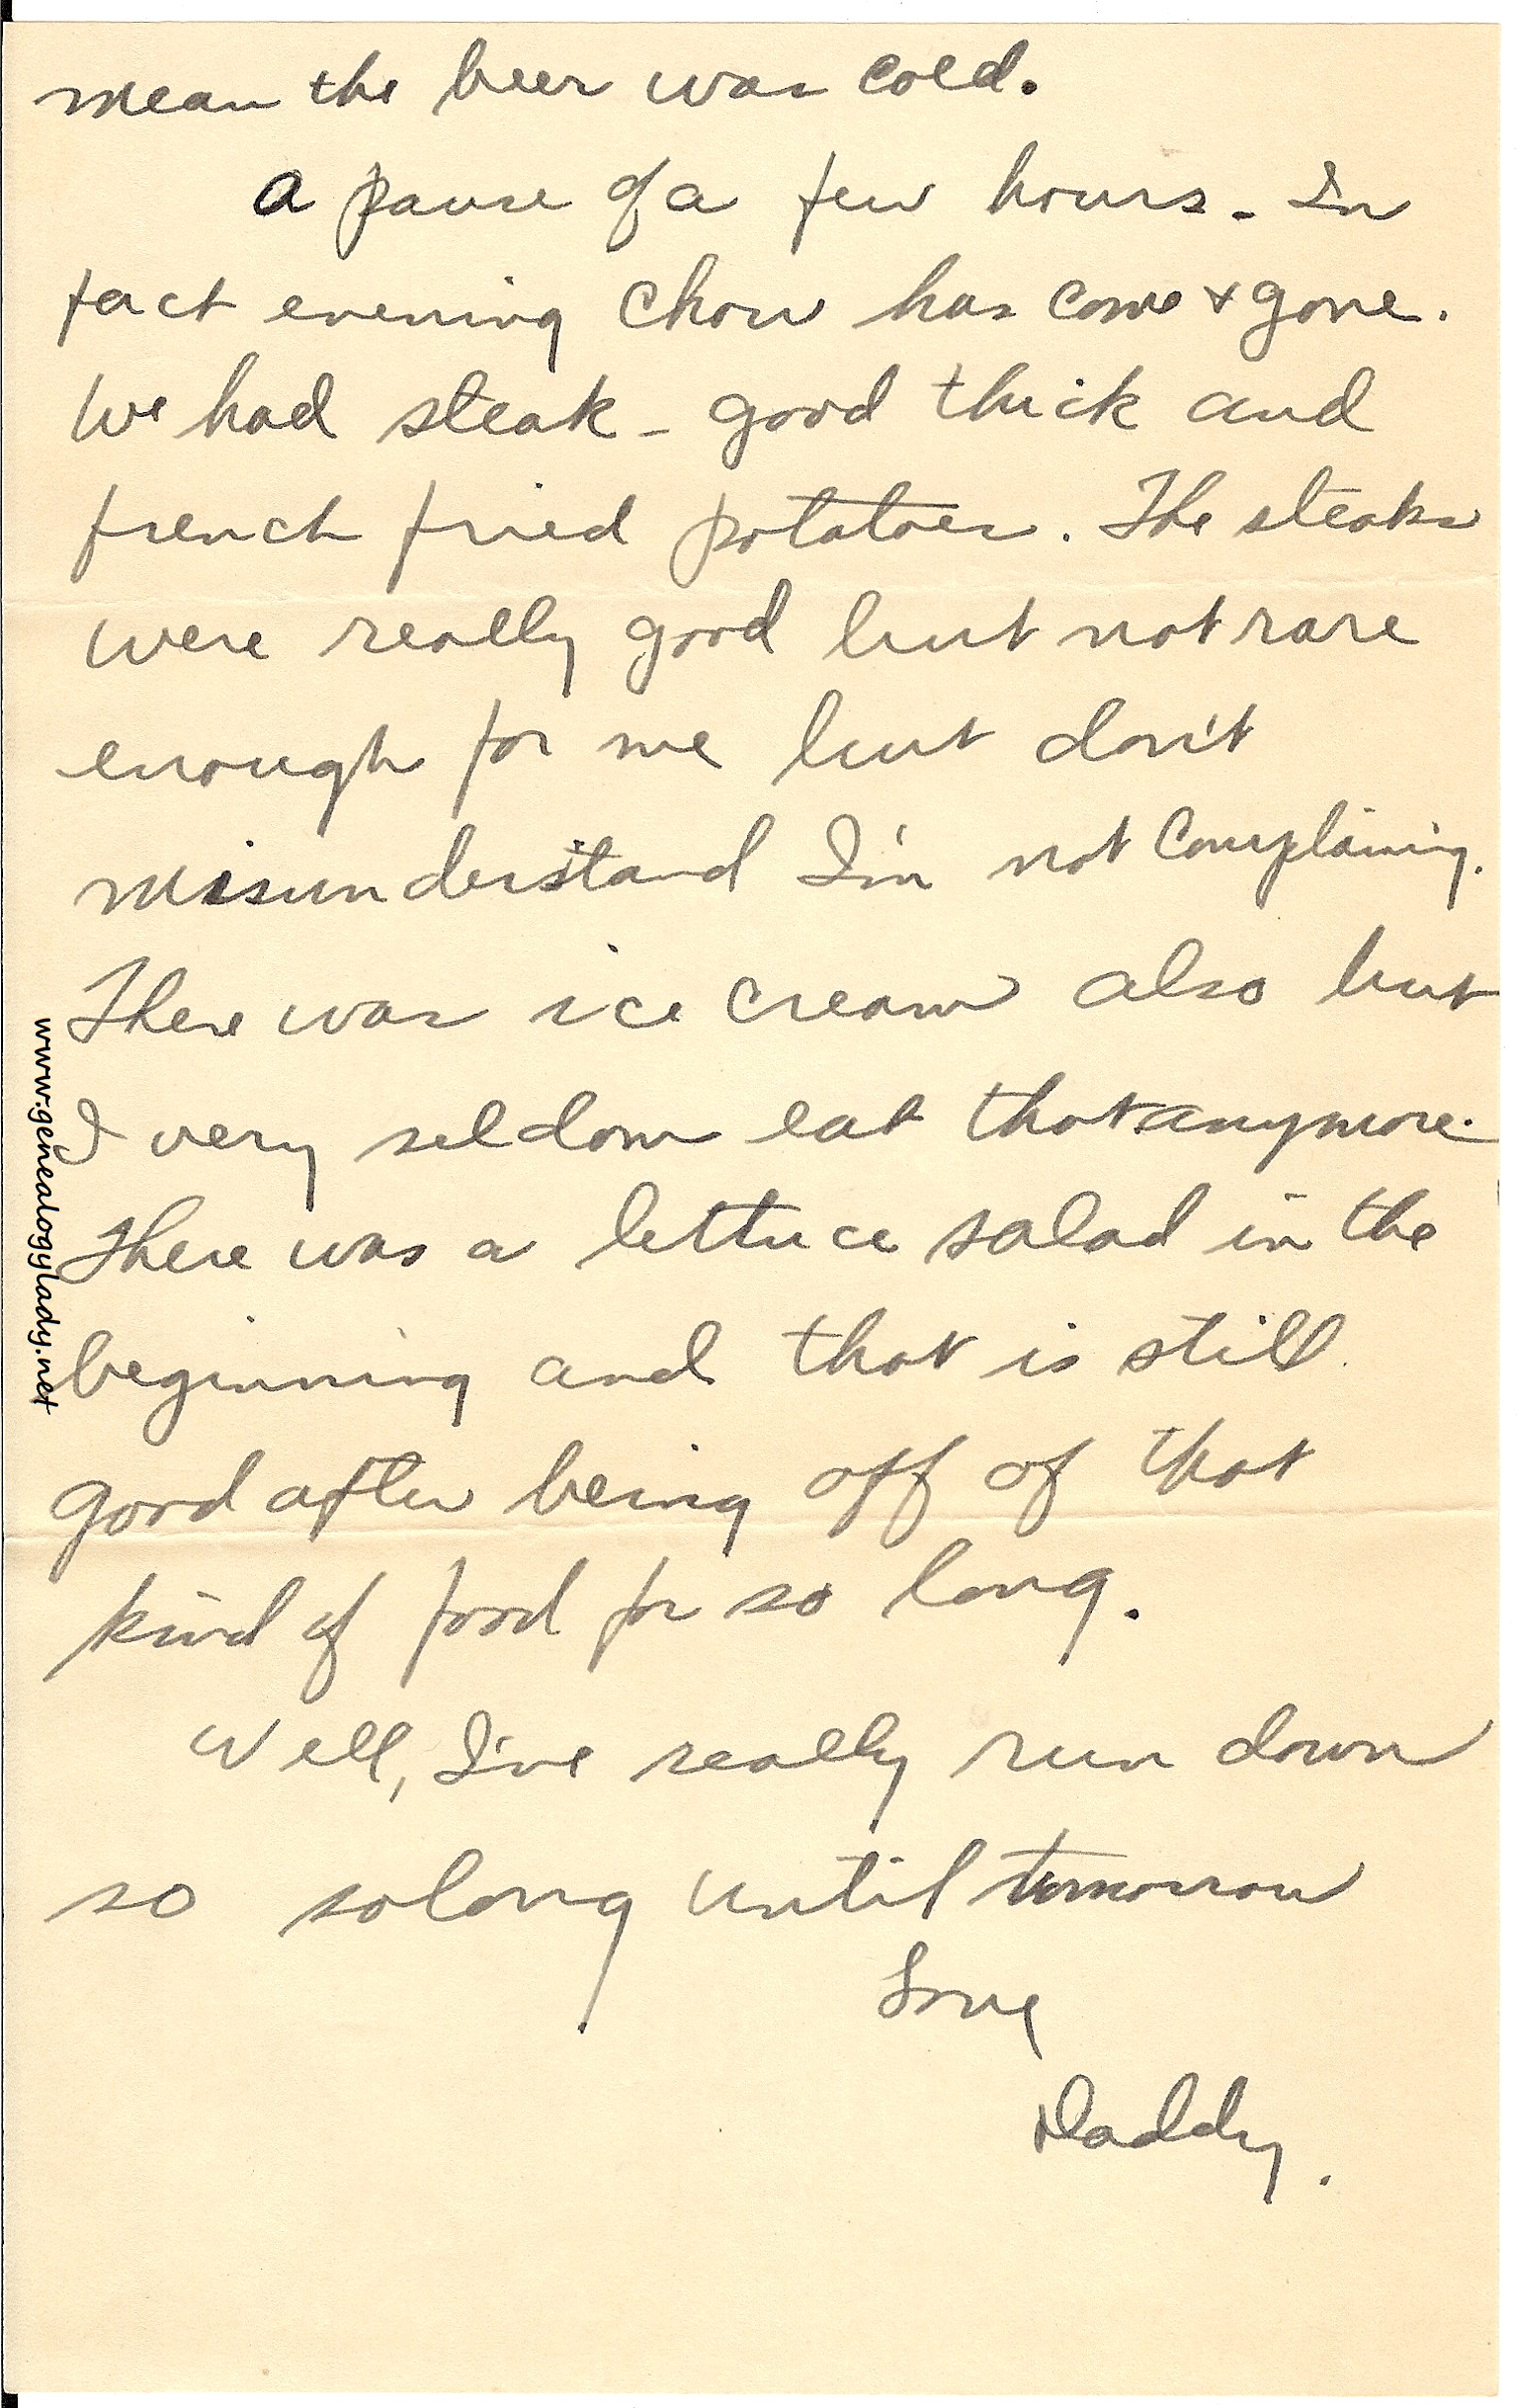 mean the beer was cold.
A pause of a few hours - In
fact evening chow has come + gone.
We had steak - good thick and
french fried potatoes. The steaks
were really good but not rare
enough for me but don't
misunderstand I'm not complaining.
There was ice cream also but
I very seldom eat that anymore.
There was a lettuce salad in the
beginning and that is still
good after being off of that
kind of food for so long.
Well, I've really run down
so solong until tomorrow
Love
Daddy.
www.genealogylady.net